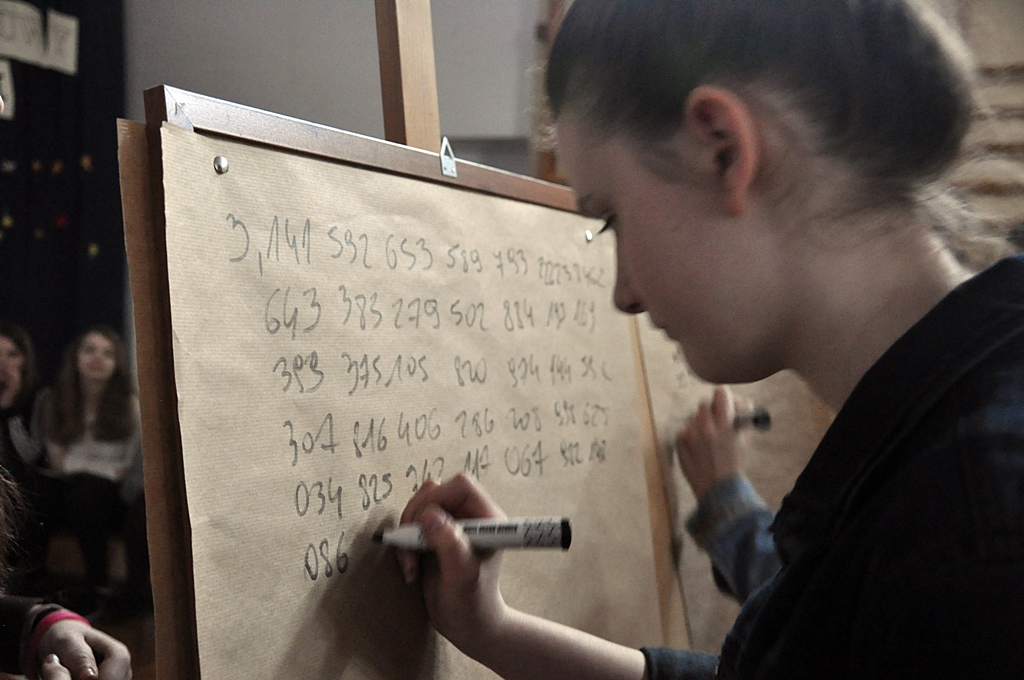 3,141 592 653 589 793
643 383 279 502 884 197 169
393 375,105 820 974 944 592
307 816 406 286 208 998 625
034 825 342 117 067 982 148
086